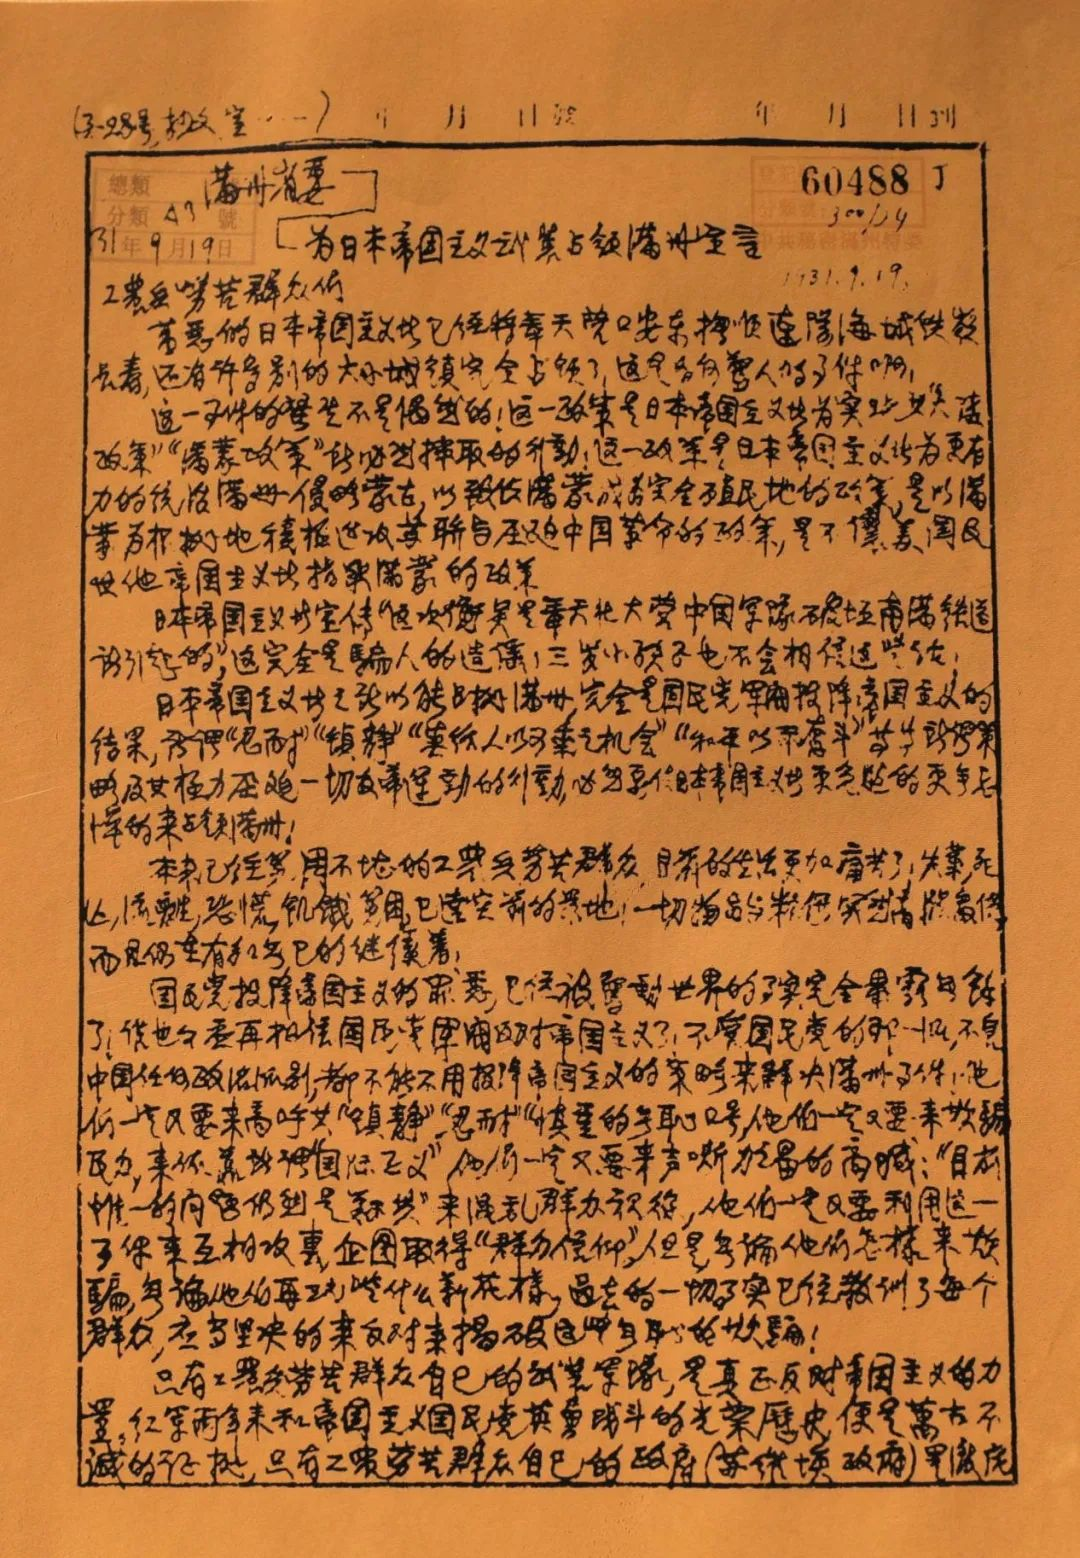 年 月 日
年 月 日到
總類
分類 號
A3
满州省委
60488
31年9月19日
300/24
为日本帝国主义武装占领满州宣言
1931.9.19.
工农兵劳苦群众们
万恶的日本帝国主义者已经将奉天营口安东抚顺 海城铁岭
长春,还有许多别的大小城镇完全占领了,这是多么 人的事件啊!
这一事件的发生不是偶然的!这一政策是日本帝国主义者为实现其大陆
政策""满蒙政策"所必然採取的行動!这一政策是日本帝国主义者为更有
力的统治满州侵略蒙古,以致使满蒙成为完全殖民地的政策,是以满
蒙为根据地积极进攻苏联与压迫中国革命的政策,是不 美国及
其他帝国主义者 满蒙的政策
日本帝国主义者宣传"这次衝突是奉天北大营中国军隊破坏南满铁道
所引起的",这完全是騙人的造谣,三岁小孩子也不会相信这些话!
日本帝国主义者之所以能占据满州,完全是国民党军阀投降帝国主义的
结果,所谓"忍耐""镇静""莫给人以可乘之机会""和平以 奋斗"等等 策
略及其极力压迫一切反帝运动的行動,必然要使日本帝国主义者更急趋的更无忌
惮的来占领满州!
本来已经穷困不堪的工农兵劳苦群众,目前的生活更加痛苦了,失業死
亡,流離,恐慌,飢餓穷困,已達空前的境地!一切物品与粮食突然 高價,
而且仍在有加无已的继续着!
国民党投降帝国主义的罪恶,已经被震動世界的事实完全暴露无餘
了!谁也不要再相信国民党军阀反对帝国主义了!不管国民党的那一派,不管
中国任何政治派别,都不能不用投降帝国主义的策略来解决满州事件,他
们一定又要来高呼其"镇静""忍耐""慎重的无耻口号,他们一定又要来欺騙
民众,来依靠所谓"国际正义"他们一定又要来声嘶力竭的高喊:"目前
惟一的问题仍然是剿共"来混乱群众视線,他们一定又要利用这一
事件来互相攻击,企图取得"群众信仰",但是无論他们怎樣来欺
騙,无論他们再玩些什么新花樣,过去的一切事实已经教训了每个
群众,应当坚决的来反对来揭破这些无耻的欺騙!
只有工農兵劳苦群众自己的武装军隊,是真正反对帝国主义的力
量,红军两年来和帝国主义国民党英勇战斗的光荣歷史,便是萬古不
滅的证据,只有工农劳苦群众自己的政府(苏维埃政府)是徹底